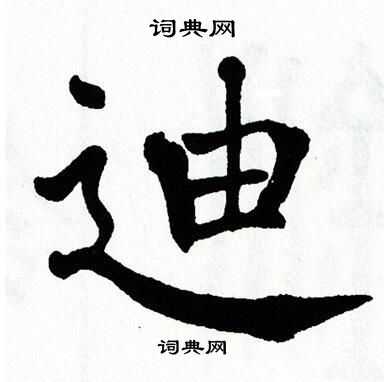 词典网
迪
词典网